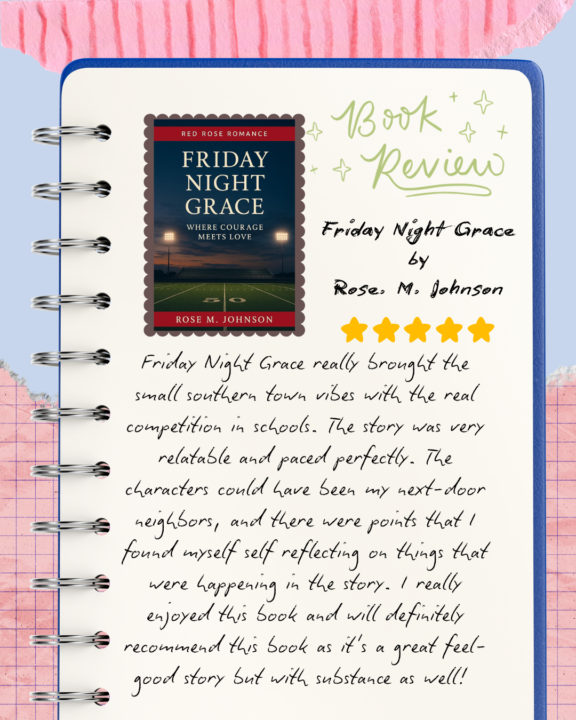 RED ROSE ROMANCE
FRIDAY
NIGHT
GRACE
WHERE COURAGE
MEETS LOVE
50
ROSE M. JOHNSON
Book
Review
Friday Night Grace
by
Rose. M. Johnson
Friday Night Grace really brought the
small southern town vibes with the real
competition in schools. The story was very
relatable and paced perfectly. The
characters could have been my next-door
neighbors, and there were points that I
found myself self reflecting on things that
were happening in the story. I really
enjoyed this book and will definitely
recommend this book as it's a great feel-
good story but with substance as well!